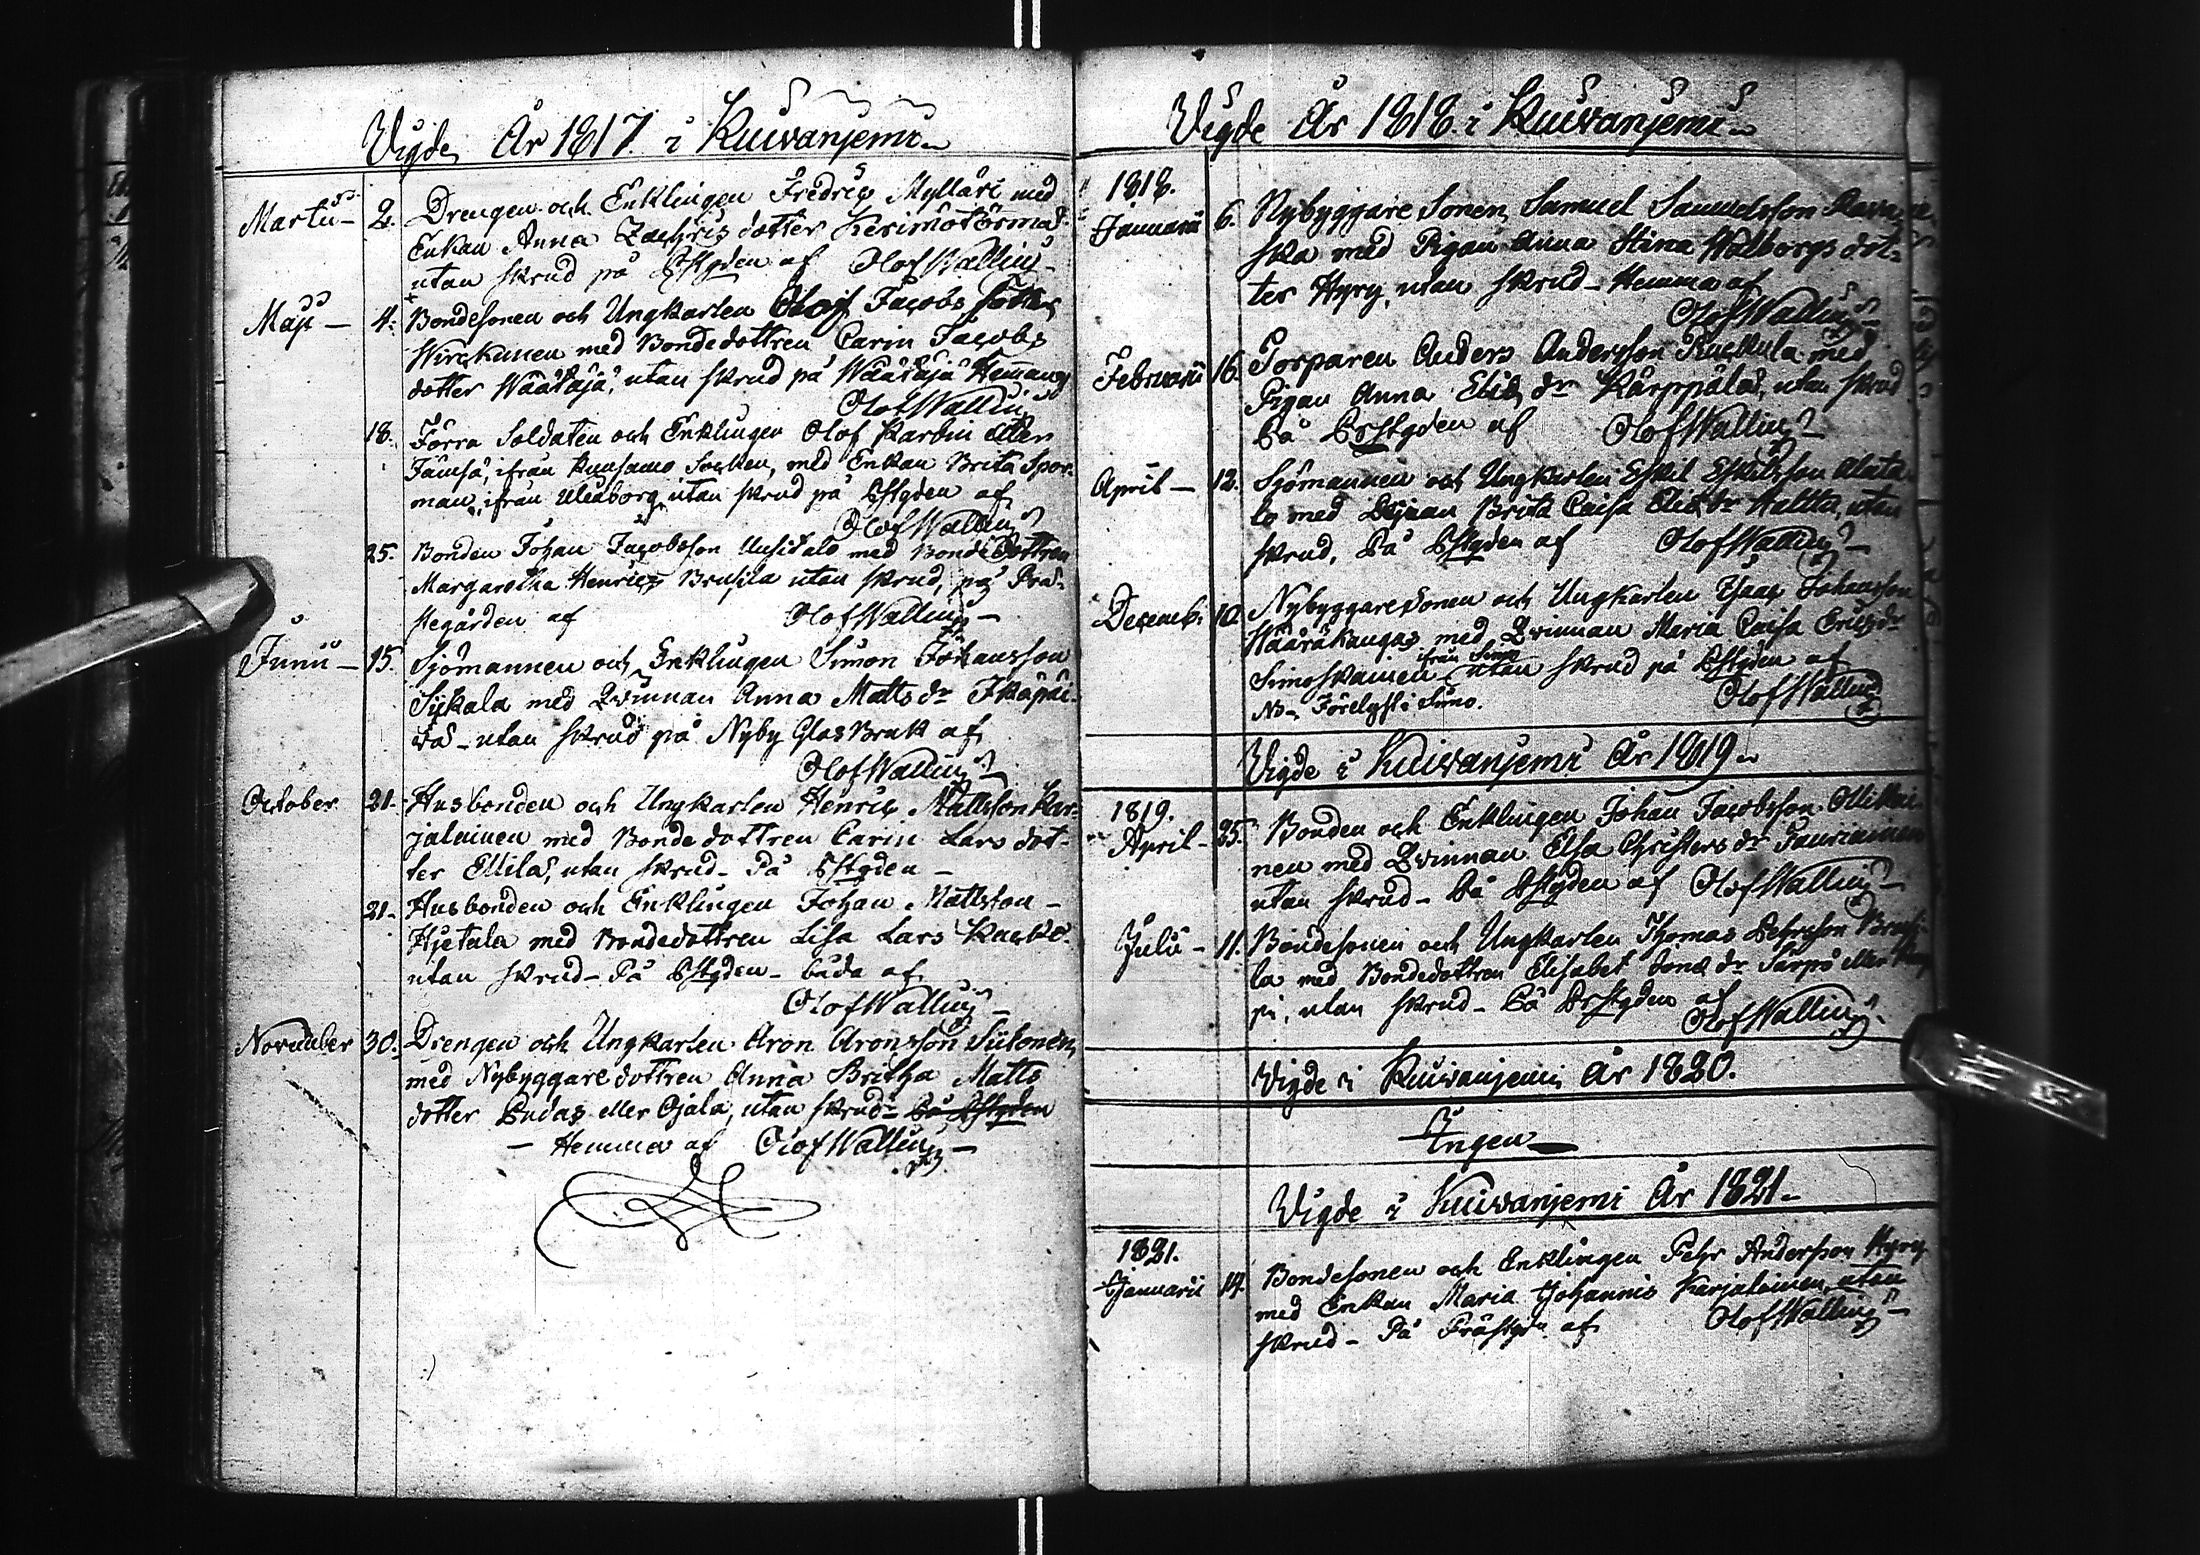 Vigde År 1817 i Kuivanjemi
Martii - 2. Drengen och Enklingen Fredric Mylläri med
Enkan Anna Zachris dotter Kerimötörmä
utan skrud på Pstgden af Olof Wallin
Maji - 4. Bondesonen och Ungkarlen Olof Jacobs
Wirckunen med Bondedottren Carin Jacobs
dotter Wäätäjä, utan skrud på Wäätäjä Heman
Olof Wallin
18. Förra Soldaten och Enklingen Olof Karbin eller
Jämsä, ifrån Kuusamo Socken, med Enkan Brita Spor-
man, ifrån Uleåborg, utan skrud på Pstgden af
Olof Wallin
25. Bonden Johan Jacobsson Uusitalo med Bondedottren
Margaretha Henrics Brusila utan skrud, på Prä-
stegården af Olof Wallin -
Junii - 15. Sjömannen och Enklingen Simon Johansson
Siikala med Qvinnan Anna Matts dr Ikäpäi-
vä - utan skrud på Nyby Glas Bruk af
Olof Wallin
October 21. Husbonden och Ungkarlen Henric Mattsson Kar-
jalainen med Bondedottren Carin Lars dot-
ter Ellilä, utan skrud - På Pstgden -
21. Husbonden och Enklingen Johan Mattsson -
Hjetala med Bondedottren Lisa Lars
utan skrud - På Pstgden - båda af
Olof Wallin -
November 30. Drengen och Ungkarlen Aron Aronsson Siitonen,
med Nybyggaredottren Anna Britha Matts
dotter Pudas eller Ojala, utan skrud - På Pstgden
- Hemma af Olof Wallin -
Vigde År 1818 i Kuivanjemi
1818.
Januarii 6. Nybyggare Sonen, Samuel Samuelsson
ska med Pigan Anna Stina Walborgs dot-
ter Hyry, utan skrud - Hemma af
Olof Wallin
Februarii 16. Torparen Anders Andersson Ruckula med
Pigan Anna Elis dr Kärppälä, utan skrud
På Pstgden af Olof Wallin
April - 12. Sjömannen och Ungkarlen Eskil Eskilsson Alata
lo med Pigan Brita Caisa Elis dr Aaltta, utan
skrud, På Pstgden af Olof Wallin -
Decemb. 10. Nybyggaresonen och Ungkarlen Isaac Johansson
Wääräkangas med Qvinnan Maria Caisa Erics dr
ifrån Simo
Simoskainen utan skrud på Pstgden af
NB - Förelyst i Simo. Olof Wallin
Vigde i Kuivanjemi År 1819 -
1819.
April - 25. Bonden och Enklingen Johan Jacobsson Ollikai-
nen med Qvinnan Elsa Christers dr Tauriainen
utan skrud - På Pstgden af Olof Wallin -
Julii - 11. Bondesonen och Ungkarlen Thomas Pehrsson Brusi-
la med Bondedottren Elisabet Jons dr Särpö eller
pi, utan skrud - På Pstgden af
Olof Wallin.
Vigde i Kuivanjemi År 1820.
Ingen
Vigde i Kuivanjemi År 1821 -
1821.
Januarii 14. Bondesonen och Enklingen Pehr Andersson Hyry
med Enkan Maria Johannis Karjalainen, utan
skrud - På Prästgn af Olof Wallin -